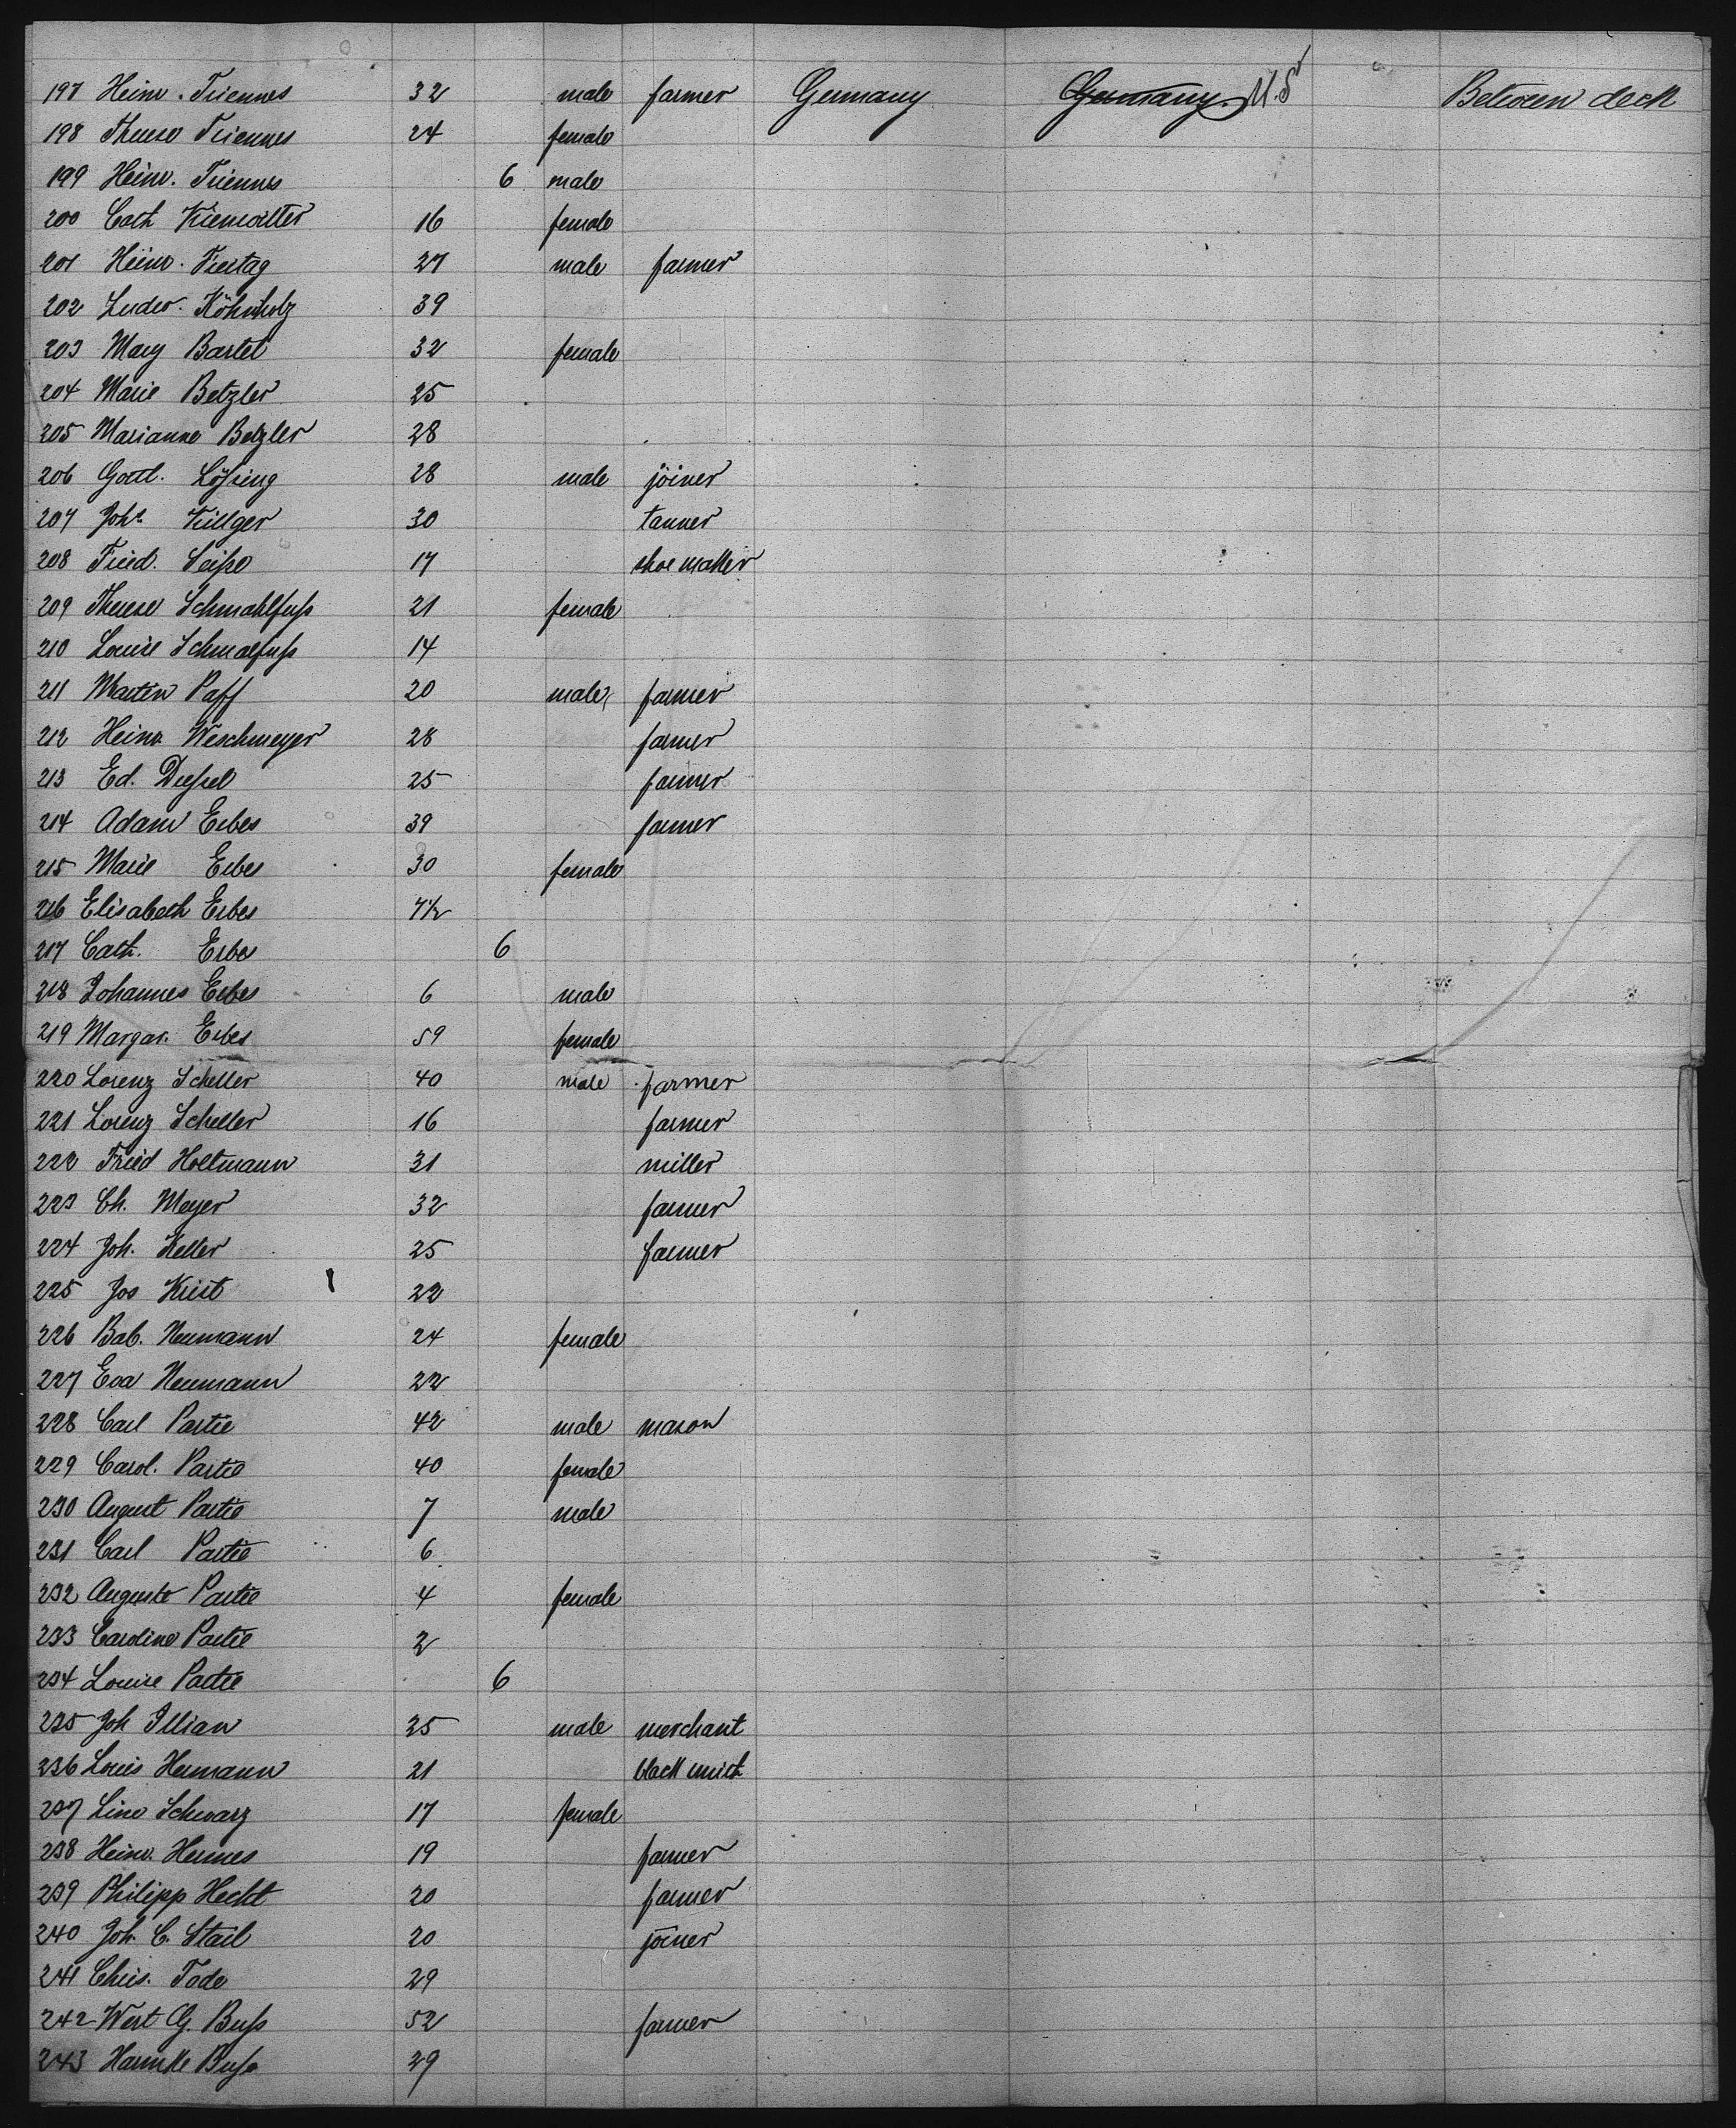 197 Heinr. Triennes 32 male farmer Germany Germany. U.S. Between deck
198 Therese Triennes 24 female
199 Heinr. Triennes 6 male
200 Cath 16 female
201 Heinr. Freitag 27 male farmer
202 Ludw. Köhnholz 39
203 Mary Bartel 32 female
204 Marie Betzler 25
205 Marianne Betzler 28
206 Gottl. Lößing 28 male joiner
207 Johs Villger 30 tanner
208 Fried. Seiße 17 shoe maker
209 Therese Schmahlfuß 21 female
210 Louise Schmalfuß 14
211 Martin Paff 20 male farmer
212 Heinr Weschmeyer 28 farmer
213 Ed. Deßel 25 farmer
214 Adam Erbes 39 farmer
215 Marie Erbes 30 female
216 Elisabeth Erbes 7½
217 Cath. Erbes 6
218 Johannes Erbes 6 male
219 Margar. Erbes 59 female
220 Lorenz Scheller 40 male farmer
221 Lorenz Scheller 16 farmer
222 Fried Holtmann 31 miller
223 Ch. Meyer 32 farmer
224 Joh. Keller 25 farmer
225 Jos Krist 22
226 Bab. Neumann 24 female
227 Eva Neumann 22
228 Carl Partie 42 male mason
229 Carol. Partie 40 female
230 August Partie 7 male
231 Carl Partie 6
232 Auguste Partie 4 female
233 Caroline Partie 2
234 Louise Partie 6
235 Joh Illian 25 male merchant
236 Louis Hermann 21 black smith
237 Line Schwarz 17 female
238 Heinr. Hermes 19 farmer
239 Philipp Hecht 20 farmer
240 Joh. C. Stail 20 joiner
241 Chris. Tode 29
242 Wert G. Buß 52 farmer
243 Harmke Buß 29